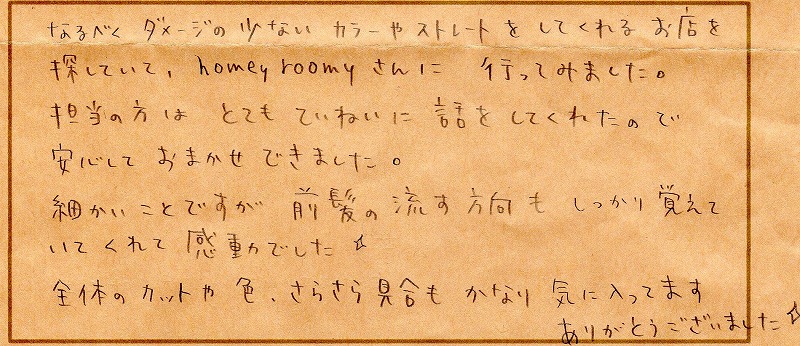 なるべく ダメージの少ない カラーや ストレートを してくれる お店を
探していて、homey roomy さんに 行ってみました。
担当の方は とても ていねいに 話を してくれたので
安心して おまかせ できました。
細かい ことですが 前髪の 流す 方向も しっかり 覚えて
いてくれて 感動でした☆
全体の カットや 色、さらさら 具合も かなり 気に入ってます
ありがとうございました☆